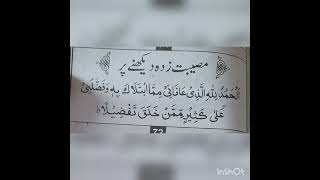 مصیبت زدہ دیکھنے پر
اَلْحَمْدُ لِلّٰہِ الَّذِیْ عَافَانِیْ مِمَّا ابْتَلَاكَ بِہٖ وَفَضَّلَنِیْ
عَلٰی كَثِیْرٍ مِّمَّنْ خَلَقَ تَفْضِیْلًا
72
InShot